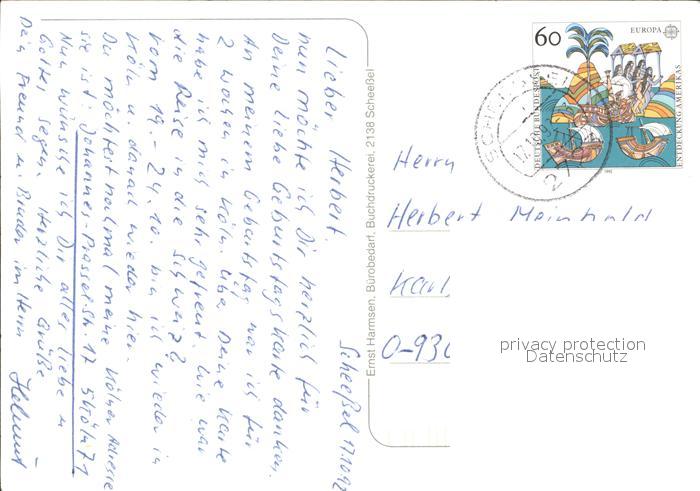 Scheeßel 17.10.92
Lieber Herbert.
nun möchte ich Dir herzlich für
Deine liebe Geburtstagskarte danken.
An meinem Geburtstag war ich für
2 Wochen in Köln. Über Deine Karte
habe ich mich sehr gefreut. Wie war
die Reise in die Schweiz?
Vom 19. - 24.10. bin ich wieder in
Köln u. danach wieder hier.
Du möchtest nochmal meine Kölner Adresse
sie ist: Johannes-Prassel-Str. 17 5 Köln 71
Nun wünsche ich Dir alles liebe u
Gottes Segen. Herzliche Grüße
Dein Freund u. Bruder im Herrn Helmut
Ernst Harmsen, Bürobedarf, Buchdruckerei, 2138 Scheeßel
60
EUROPA
DEUTSCHE BUNDESPOST
ENTDECKUNG AMERIKAS
1992
Herrn
Herbert Meinhold
Karl
O-930
privacy protection
Datenschutz